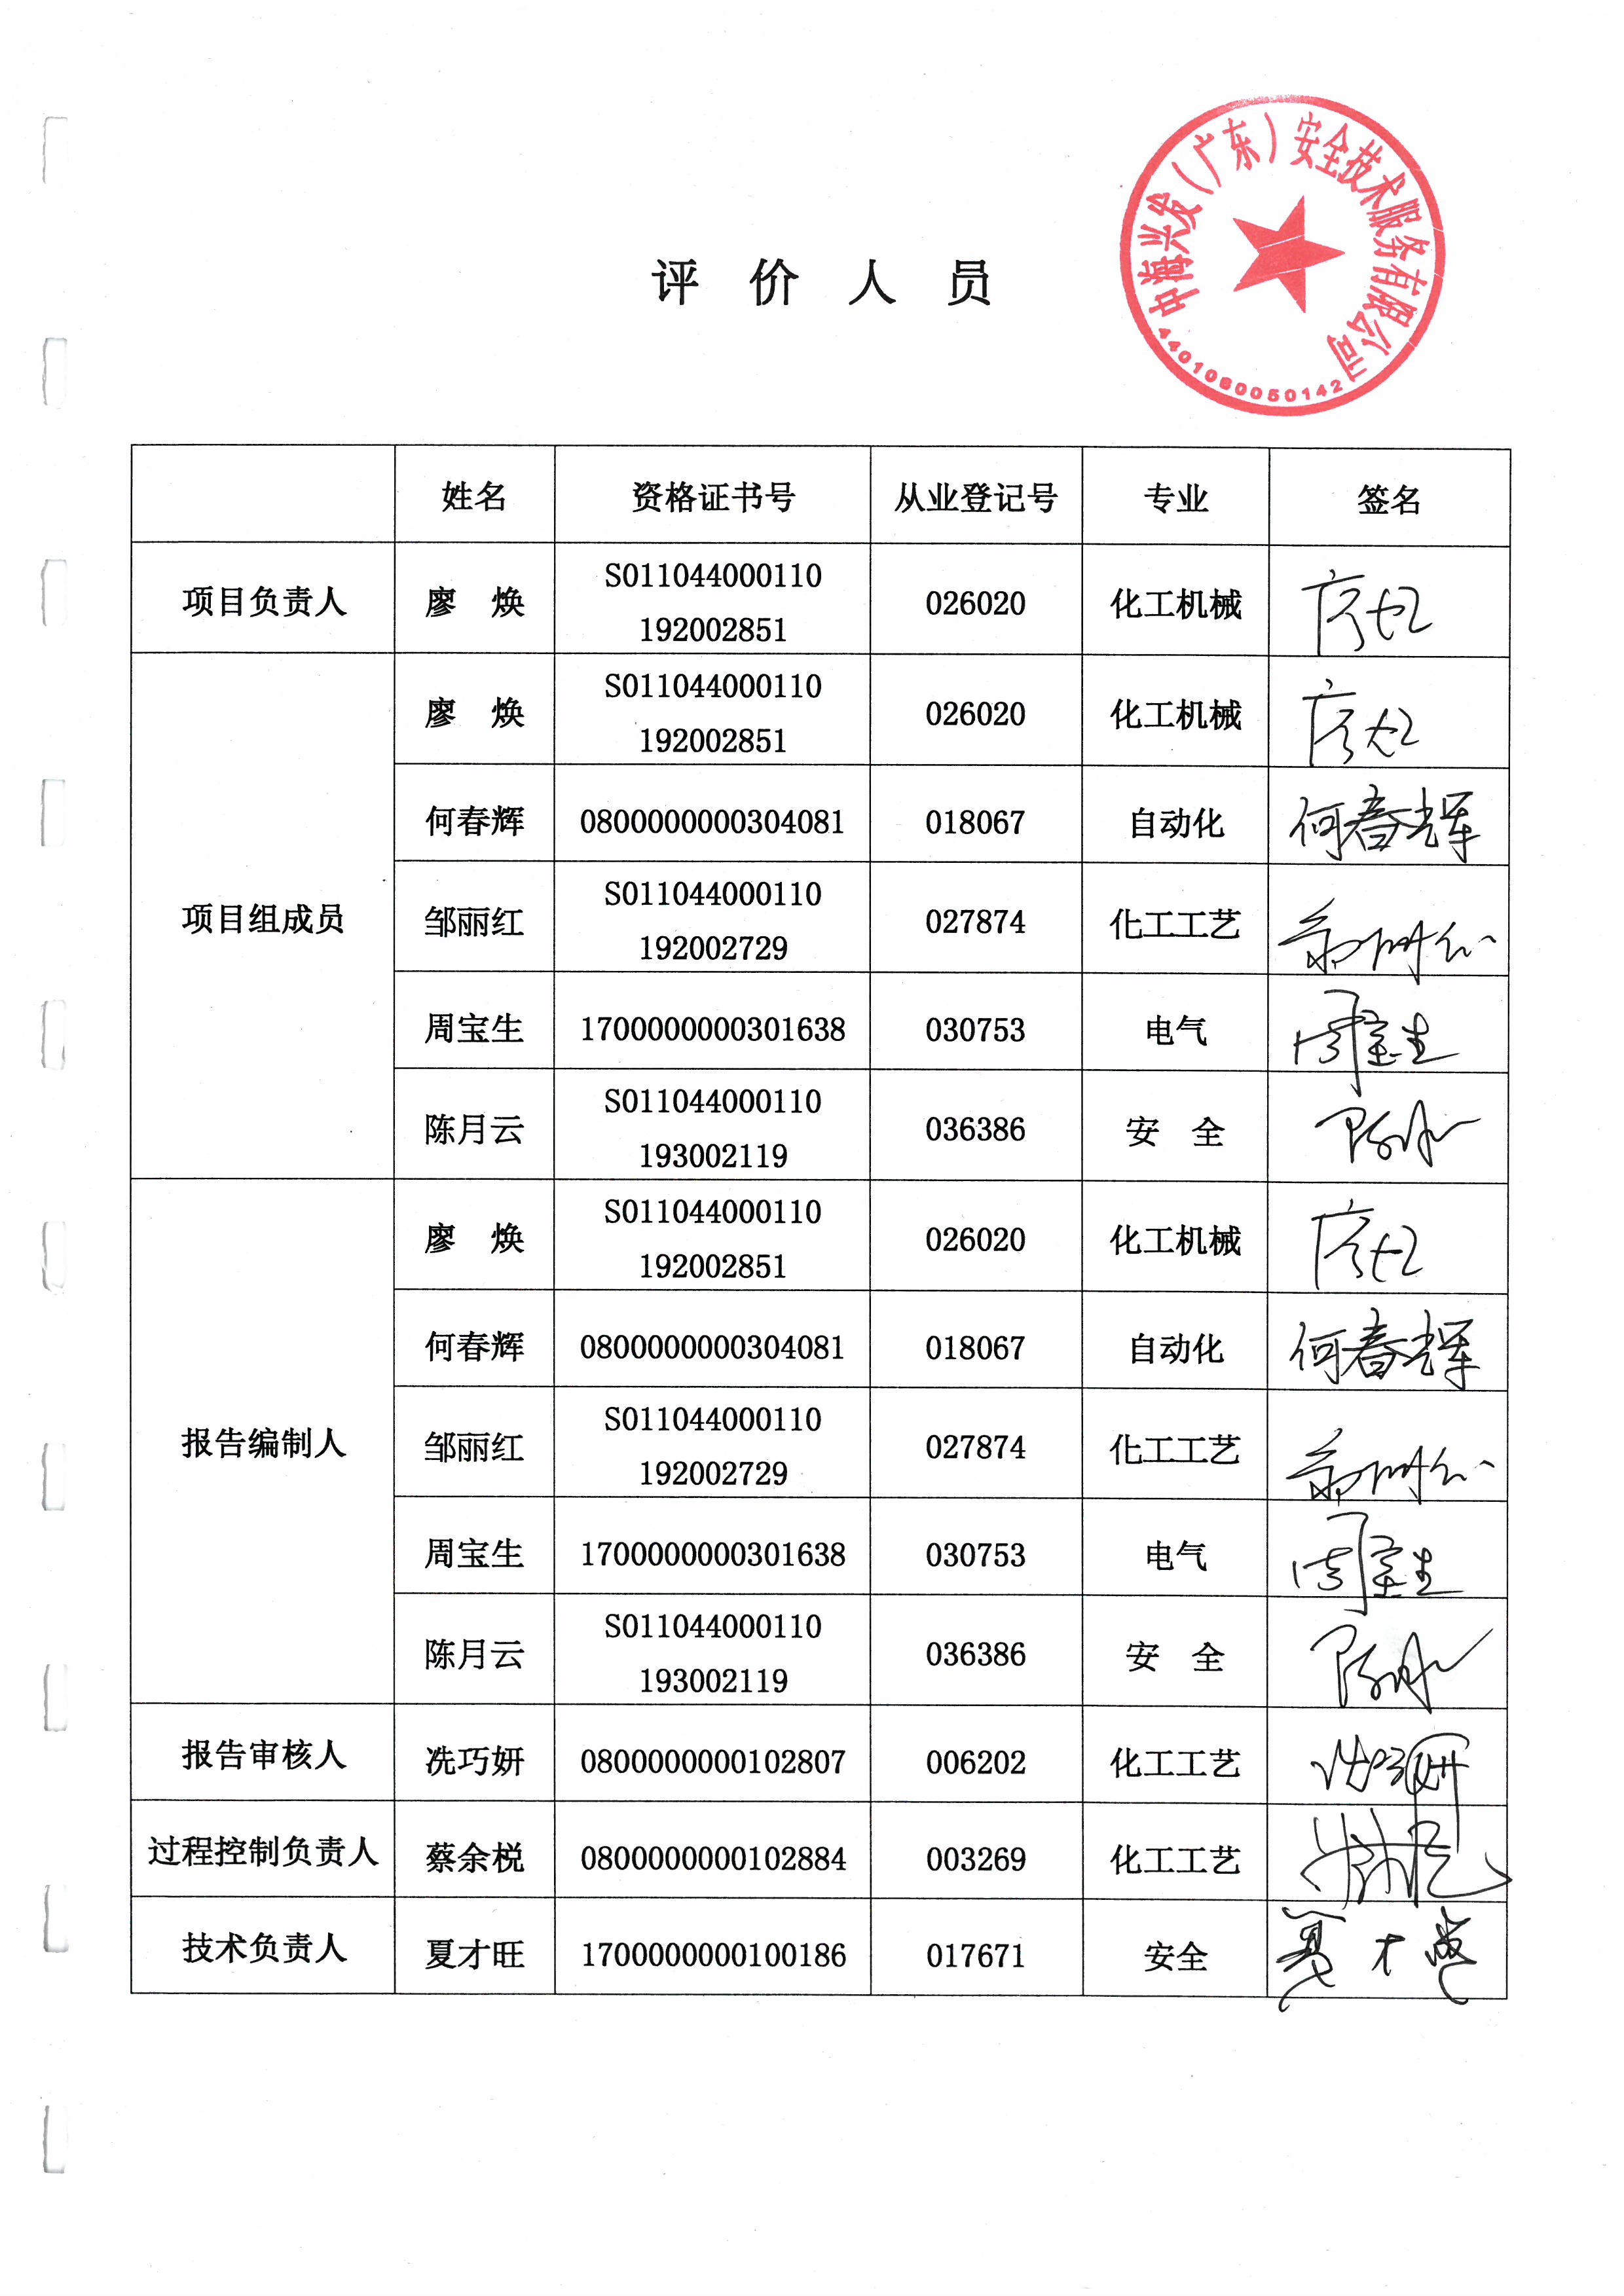 评 价 人 员
中海兴发（广东）安全技术服务有限公司
姓名 资格证书号 从业登记号 专业 签名
项目负责人 廖 焕 S011044000110 192002851 026020 化工机械
项目组成员
廖 焕 S011044000110 192002851 026020 化工机械
何春辉 0800000000304081 018067 自动化 何春辉
邹丽红 S011044000110 192002729 027874 化工工艺
周宝生 1700000000301638 030753 电气 周宝生
陈月云 S011044000110 193002119 036386 安 全
报告编制人
廖 焕 S011044000110 192002851 026020 化工机械
何春辉 0800000000304081 018067 自动化 何春辉
邹丽红 S011044000110 192002729 027874 化工工艺
周宝生 1700000000301638 030753 电气 周宝生
陈月云 S011044000110 193002119 036386 安 全
报告审核人 冼巧妍 0800000000102807 006202 化工工艺
过程控制负责人 蔡余棁 0800000000102884 003269 化工工艺
技术负责人 夏才旺 1700000000100186 017671 安全 夏才旺